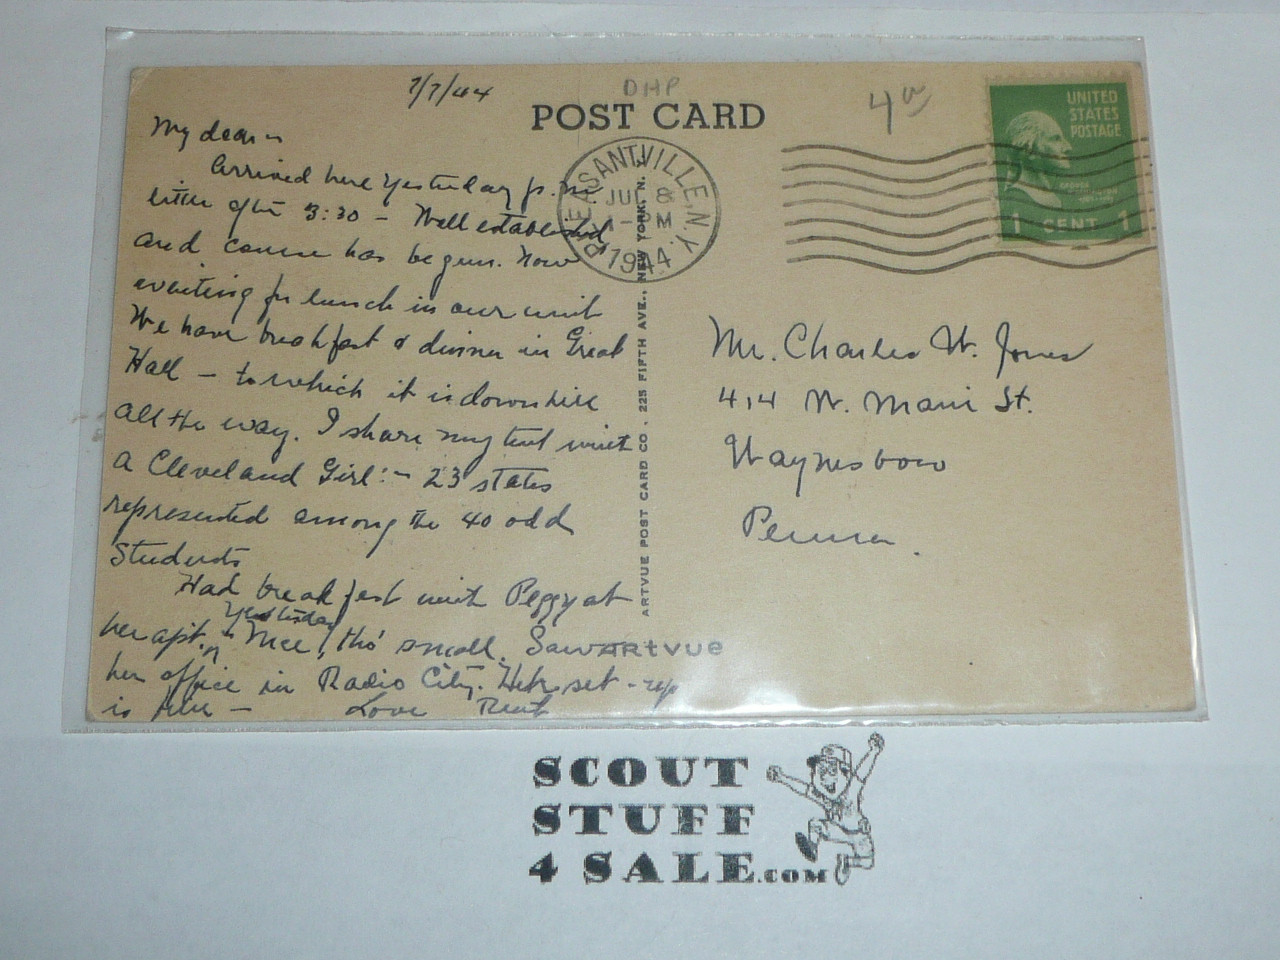 7/7/44
DHP
POST CARD
4
My dear -
Arrived here yesterday p.m.
little after 3:30 - Well established
and course has begun. Now
waiting for lunch in our unit
We have breakfast & dinner in Great
Hall - to which it is downhill
all the way. I share my tent with
a Cleveland Girl: - 23 states
represented among the 40 odd
Students
Had breakfast with Peggy at
her apt. yesterday Nice, tho' small. Saw
her office in Radio City. Her set-up
is fine - Love Ruth
PLEASANTVILLE, N.Y.
JUL 8
PM
1944
UNITED
STATES
POSTAGE
1 CENT 1
Mr. Charles W. Jones
414 W. Main St.
Waynesboro
Penna.
ARTVUE POST CARD CO., 225 FIFTH AVE., NEW YORK, N. Y.
ARTVUE
SCOUT
STUFF
4 SALE.COM